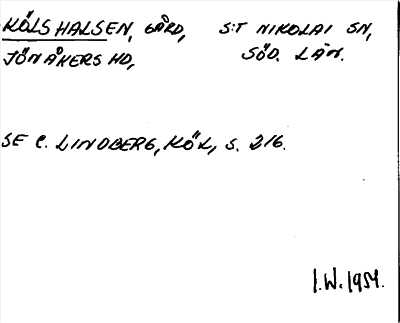 KÖLSHALSEN, GÅRD, S:T NIKOLAI SN,
JÖNÅKERS HD, SÖD. LÄN.
SE C. LINDBERG, KÖL, S. 216.
I.W. 1954.